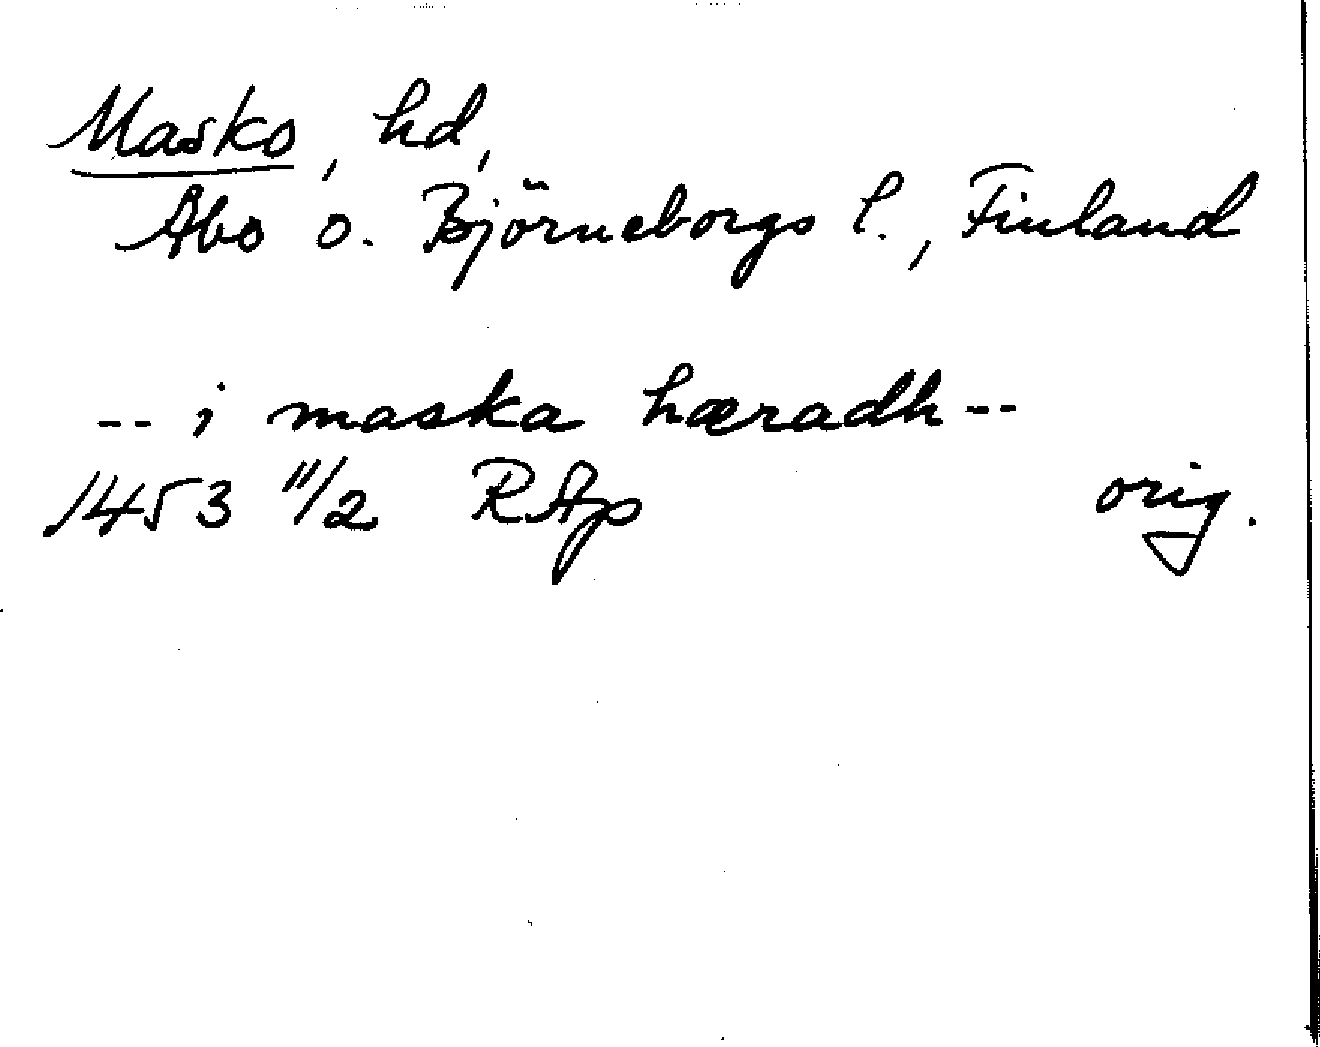 Masko, hd,
Åbo o. Björneborgs l., Finland
-- i maska hæradh --
1453 11/2 RAp orig.